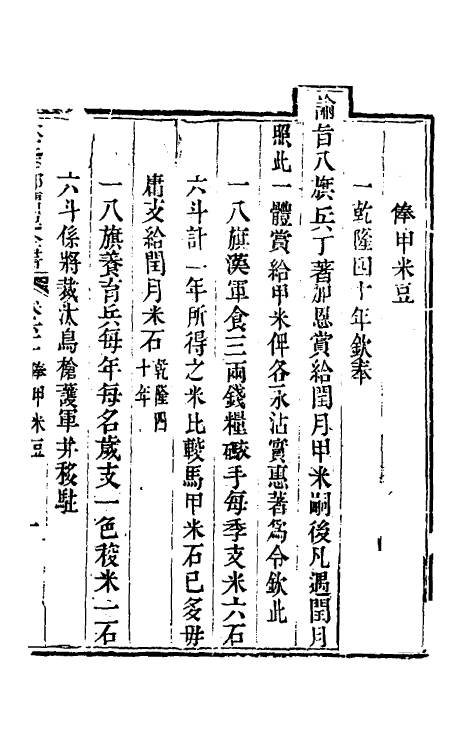 俸甲米豆
一乾隆四十年欽奉
諭旨八旗兵丁著加恩賞給閏月甲米嗣後凡遇閏月
照此一體賞給甲米俾各永沾實惠著爲令欽此
一八旗漢軍食三兩錢糧礟手每季支米六石
六斗計一年所得之米比較馬甲米石已多毋
庸支給閏月米石乾隆四十年
一八旗養育兵每年每名歲支一色稄米一石
六斗係將裁汰鳥槍護軍幷移駐
卷六一 俸甲米豆 一